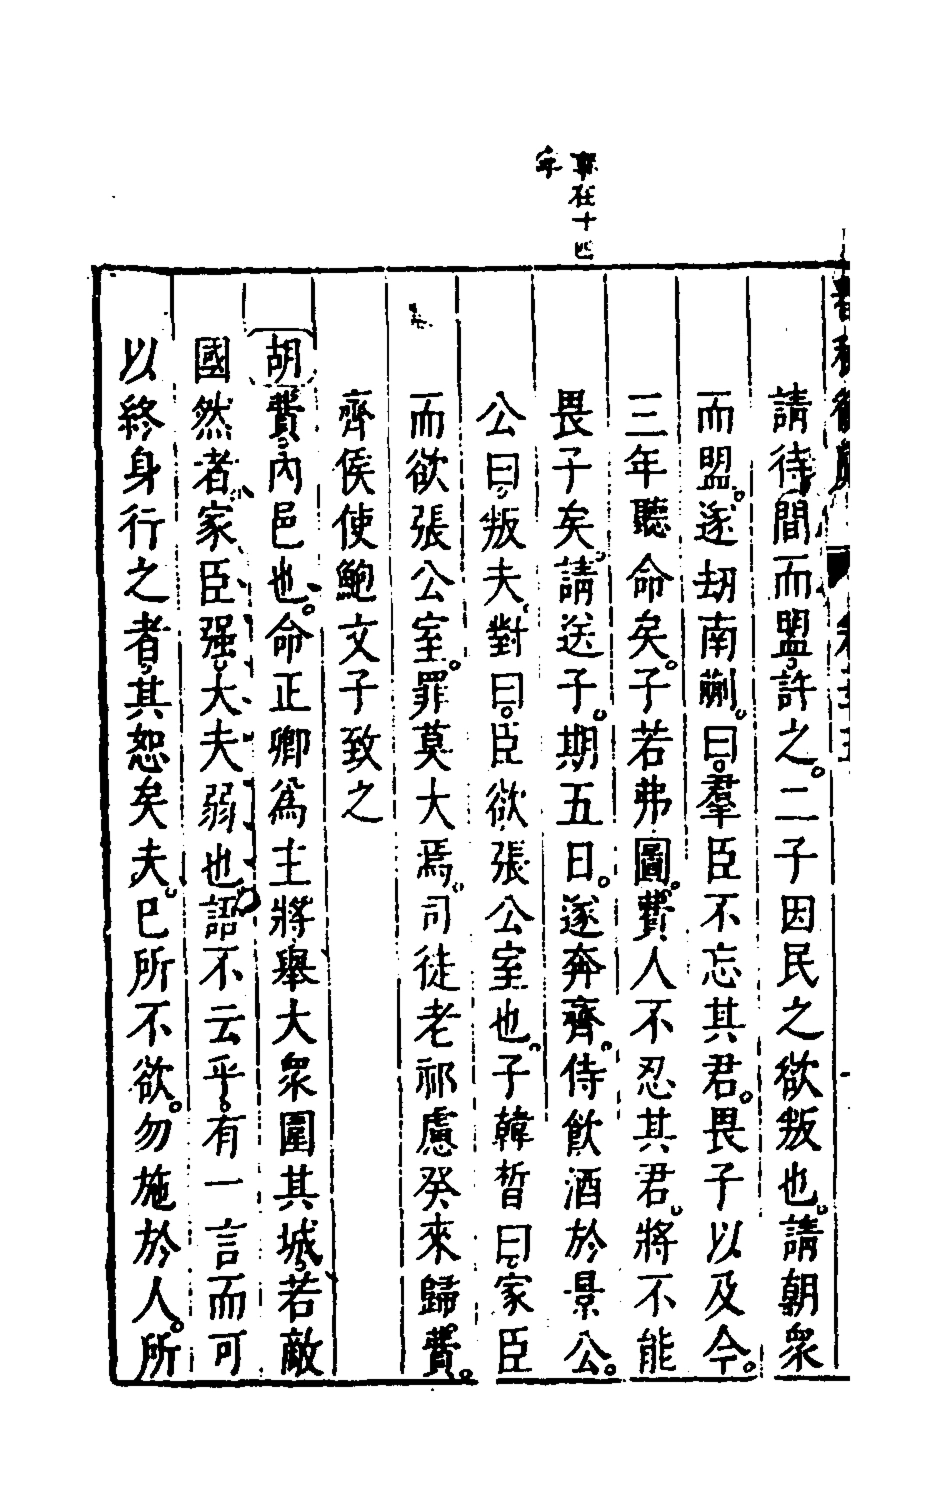 事在十四
年
請待間而盟許之二子因民之欲叛也請朝衆
而盟遂劫南蒯曰羣臣不忘其君畏子以及今
三年聽命矣子若弗圖費人不忍其君將不能
畏子矣請送子期五日遂奔齊侍飲酒於景公
公曰叛夫對曰臣欲張公室也子韓晳曰家臣
而欲張公室罪莫大焉司徒老祁慮癸來歸費
齊侯使鮑文子致之
胡費內邑也命正卿爲主將舉大衆圍其城若敵
國然者家臣强大夫弱也語不云乎有一言而可
以終身行之者其恕矣夫已所不欲勿施於人所